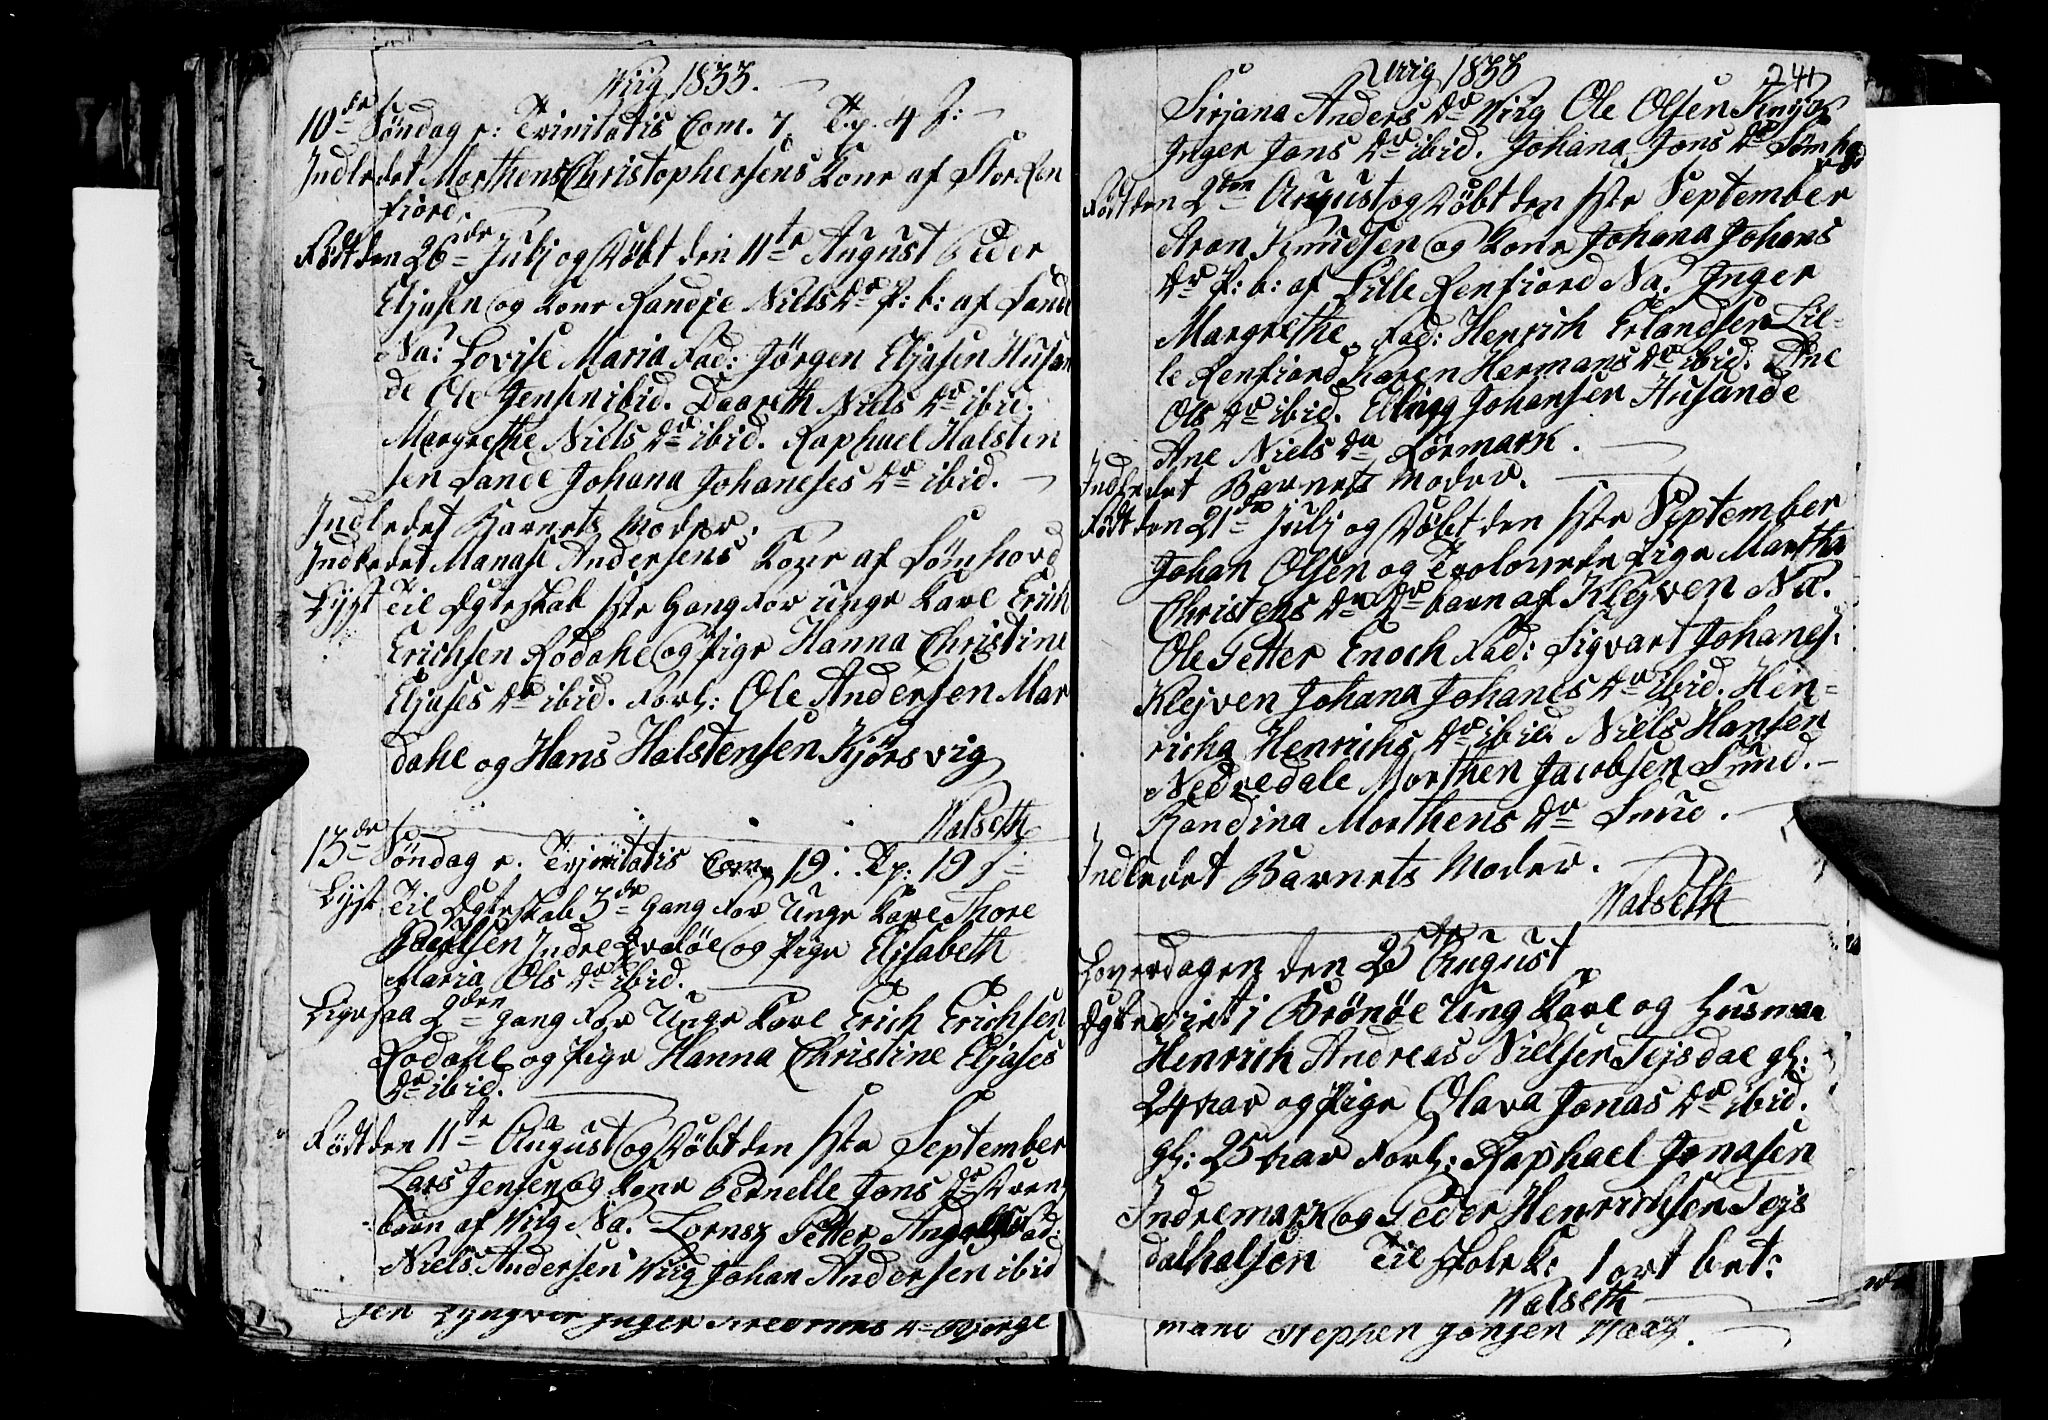 Wiig 1833.
10de Søndag e: Trinitatis Com. 7, Tp. 4 f:
Indledet Morthens Christophersens Kone af Stor Ren
fiord.
Født den 26de Julj og Døbt den 11te August Peder
Eljasen og Kone Randje Niels Dr P: b: af Sande
Na: Lovise Maria Fad: Jørgen Eljasen Husan
de Ole Jensen ibid. Daareth Niels Dr ibid.
Margrethe Niels Dr ibid. Raphael Halsten
sen Sande Johana Johaneses Dr ibid.
Indledet Barnets Moder.
Indledet Manase Andersens Kone af Sømhovd
Lyst Til Ægteskab 1ste Gang For unge Karl Erich
Erichsen Rødahl og Pige Hanna Christine
Eljases Dr ibid. Forl: Ole Andersen Mar
dahl og Hans Halstensen Kjørsvig
Walseth
13de Søndag e. Trinitatis Com 19. Tp: 19 f:
Lyst Til Ægteskab 3de Gang For Unge Karl Thore
Indre og Pige Elisabeth
Maria Ols Dr ibid.
Ligesaa 2den gang For Unge Karl Erich Erichsen
Rodahl og Pige Hanna Christine Eljases
Dr ibid.
Født den 11te August og Døbt den 1ste September
Lars Jensen og Kone Pernelle Jons Dr
barn af Wiig Na. Lornsz Petter Fad:
Niels Andersen Wiig Johan Andersen ibid
sen Lyngvær Inger Dr Bjerge
Wiig 1833
241
Sirjana Anders Dr Wiig Ole Olsen
Inger Jons Dr ibid. Johana Jons Dr Sømho
vd
Født den 2den August og Døbt den 1ste September
Aron Knudsen og Kone Johana Johans
Dr P: b: af Lille Renfiord Na. Inger
Margrethe. Fad: Henrich Erlandsen Lil-
le Renfiord Karen Hermans Dr ibid: Ane
Ols Dr ibid. Elling Johansen Husande
Ane Niels Dr Lørmark.
Indledet Barnets Moder.
Født den 21de Julj og Døbt den 1ste September
Johan Olsen og Troloverde Pige Martha
Christens Dr barn af Klejven Na.
Ole Petter Enoch Fad: Sigvart Johanes:
Klejven Johana Johanes Dr ibid. Hen-
richa Henrichs Dr ibid Niels Hansen
Nedredale Morthen Jacobsen Sund.
Randina Morthens Dr Sund.
Indledet Barnets Moder.
Walseth
Løverdagen den 25te August
Ægteviet i Brønøe Ung Karl og Husman
Henrich Andreas Nielsen Tejsdal gl:
24 Aar og Pige Olava Jonas Dr ibid.
gl: 25 Aar Forl: Raphael Jonasen
Indremark og Peder Henrichsen Tejs
dalhalsen Til Skolek: 1 ort bet:
Walseth
mand Stephen Jonsen